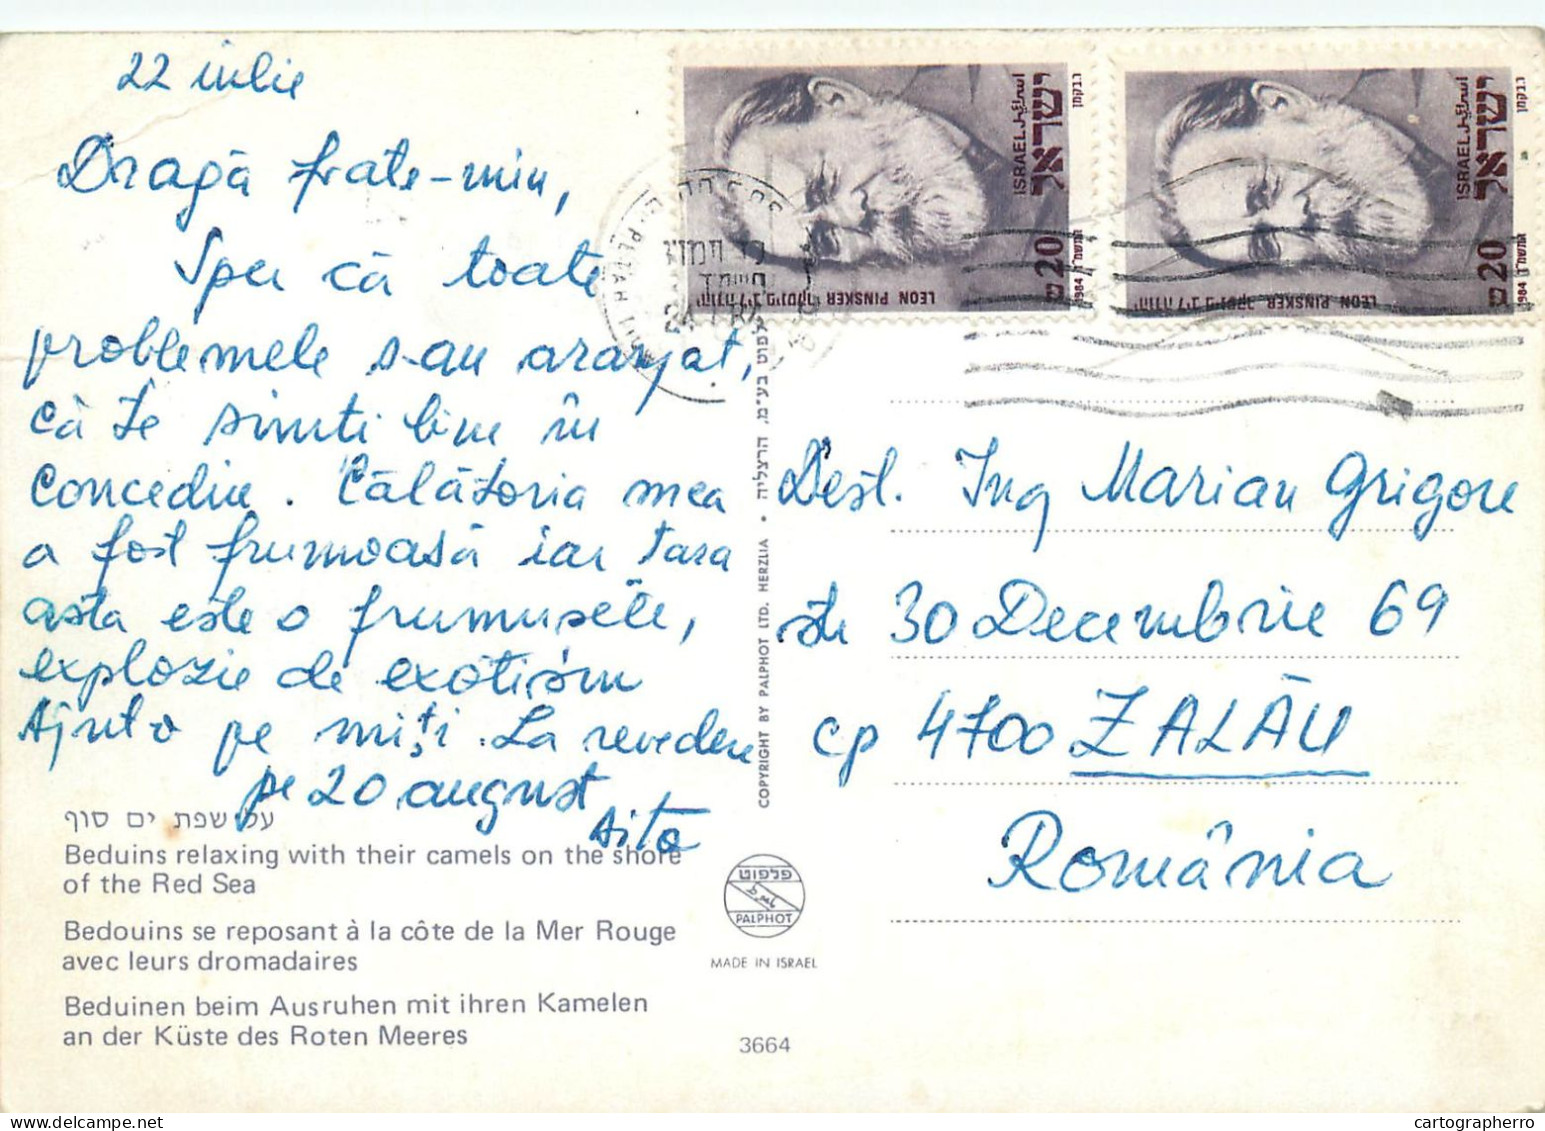 22 iulie
Dragă frate-miu,
Sper că toate
problemele s-au aranjat,
că te simti bine în
Concediu. Călătoria mea
a fost frumoasă iar tara
asta este o frumusete,
explozie de exotism
pe miți. La revedere
pe 20 august
על שפת ים סוף
Beduins relaxing with their camels on the shore
of the Red Sea
Bedouins se reposant à la côte de la Mer Rouge
avec leurs dromadaires
Beduinen beim Ausruhen mit ihren Kamelen
an der Küste des Roten Meeres
COPYRIGHT BY PALPHOT LTD. HERZLIA • פלפוט בע"מ, הרצליה
פלפוט
PALPHOT
MADE IN ISRAEL
3664
ישראל
اسرائيل
ISRAEL
20 ש
1984 התשמ"ד
LEON PINSKER יהודה ליב פינסקר
ישראל
اسرائيل
ISRAEL
20 ש
1984 התשמ"ד
LEON PINSKER יהודה ליב פינסקר
PETAH
Dest. Ing Marian Grigore
str 30 Decembrie 69
cp 4700 ZALĂU
România
cartographerro